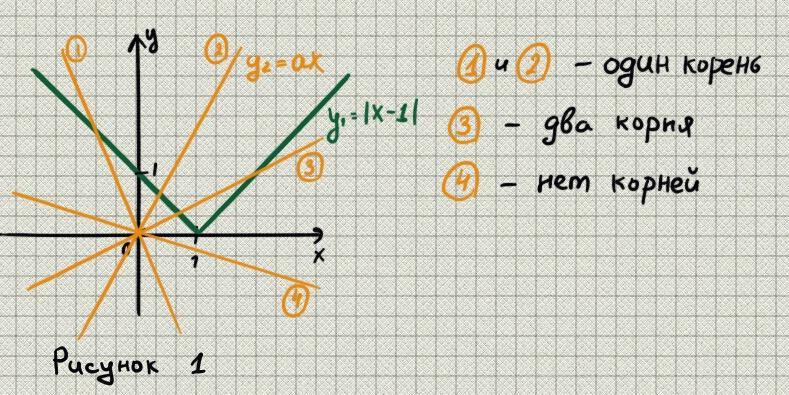 ① ② y
y₂ = ax
y₁ = |x-1|
1
③
0 1 x
④
Рисунок 1
① и ② - один корень
③ - два корня
④ - нет корней